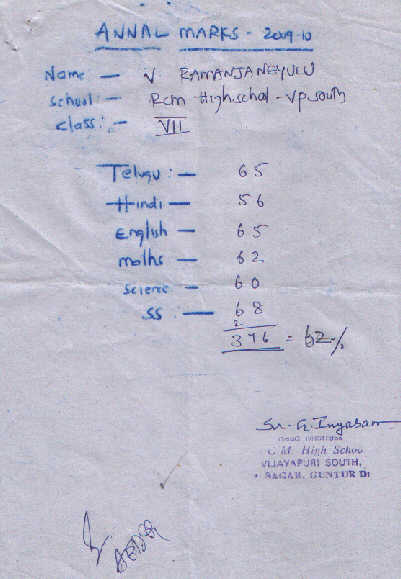 ANNAL MARKS - 2009-10
Name — V RAMANJANEYULU
School: — Rcm High.school - vp.south
Class: — VII
Telugu: — 65
Hindi — 56
English — 65
maths — 62
Science — 60
SS: — 68
2
376 = 62%
Sr. G. Inyasam
C M. High School
VIJAYAPURI SOUTH,
SAGAR, GUNTUR Dt